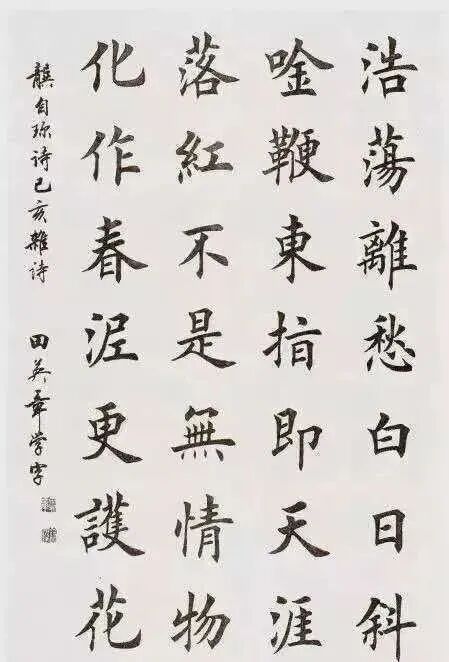 浩蕩離愁白日斜
唫鞭東指即天涯
落紅不是無情物
化作春泥更護花
龔自珍詩己亥雜詩
田英章学字